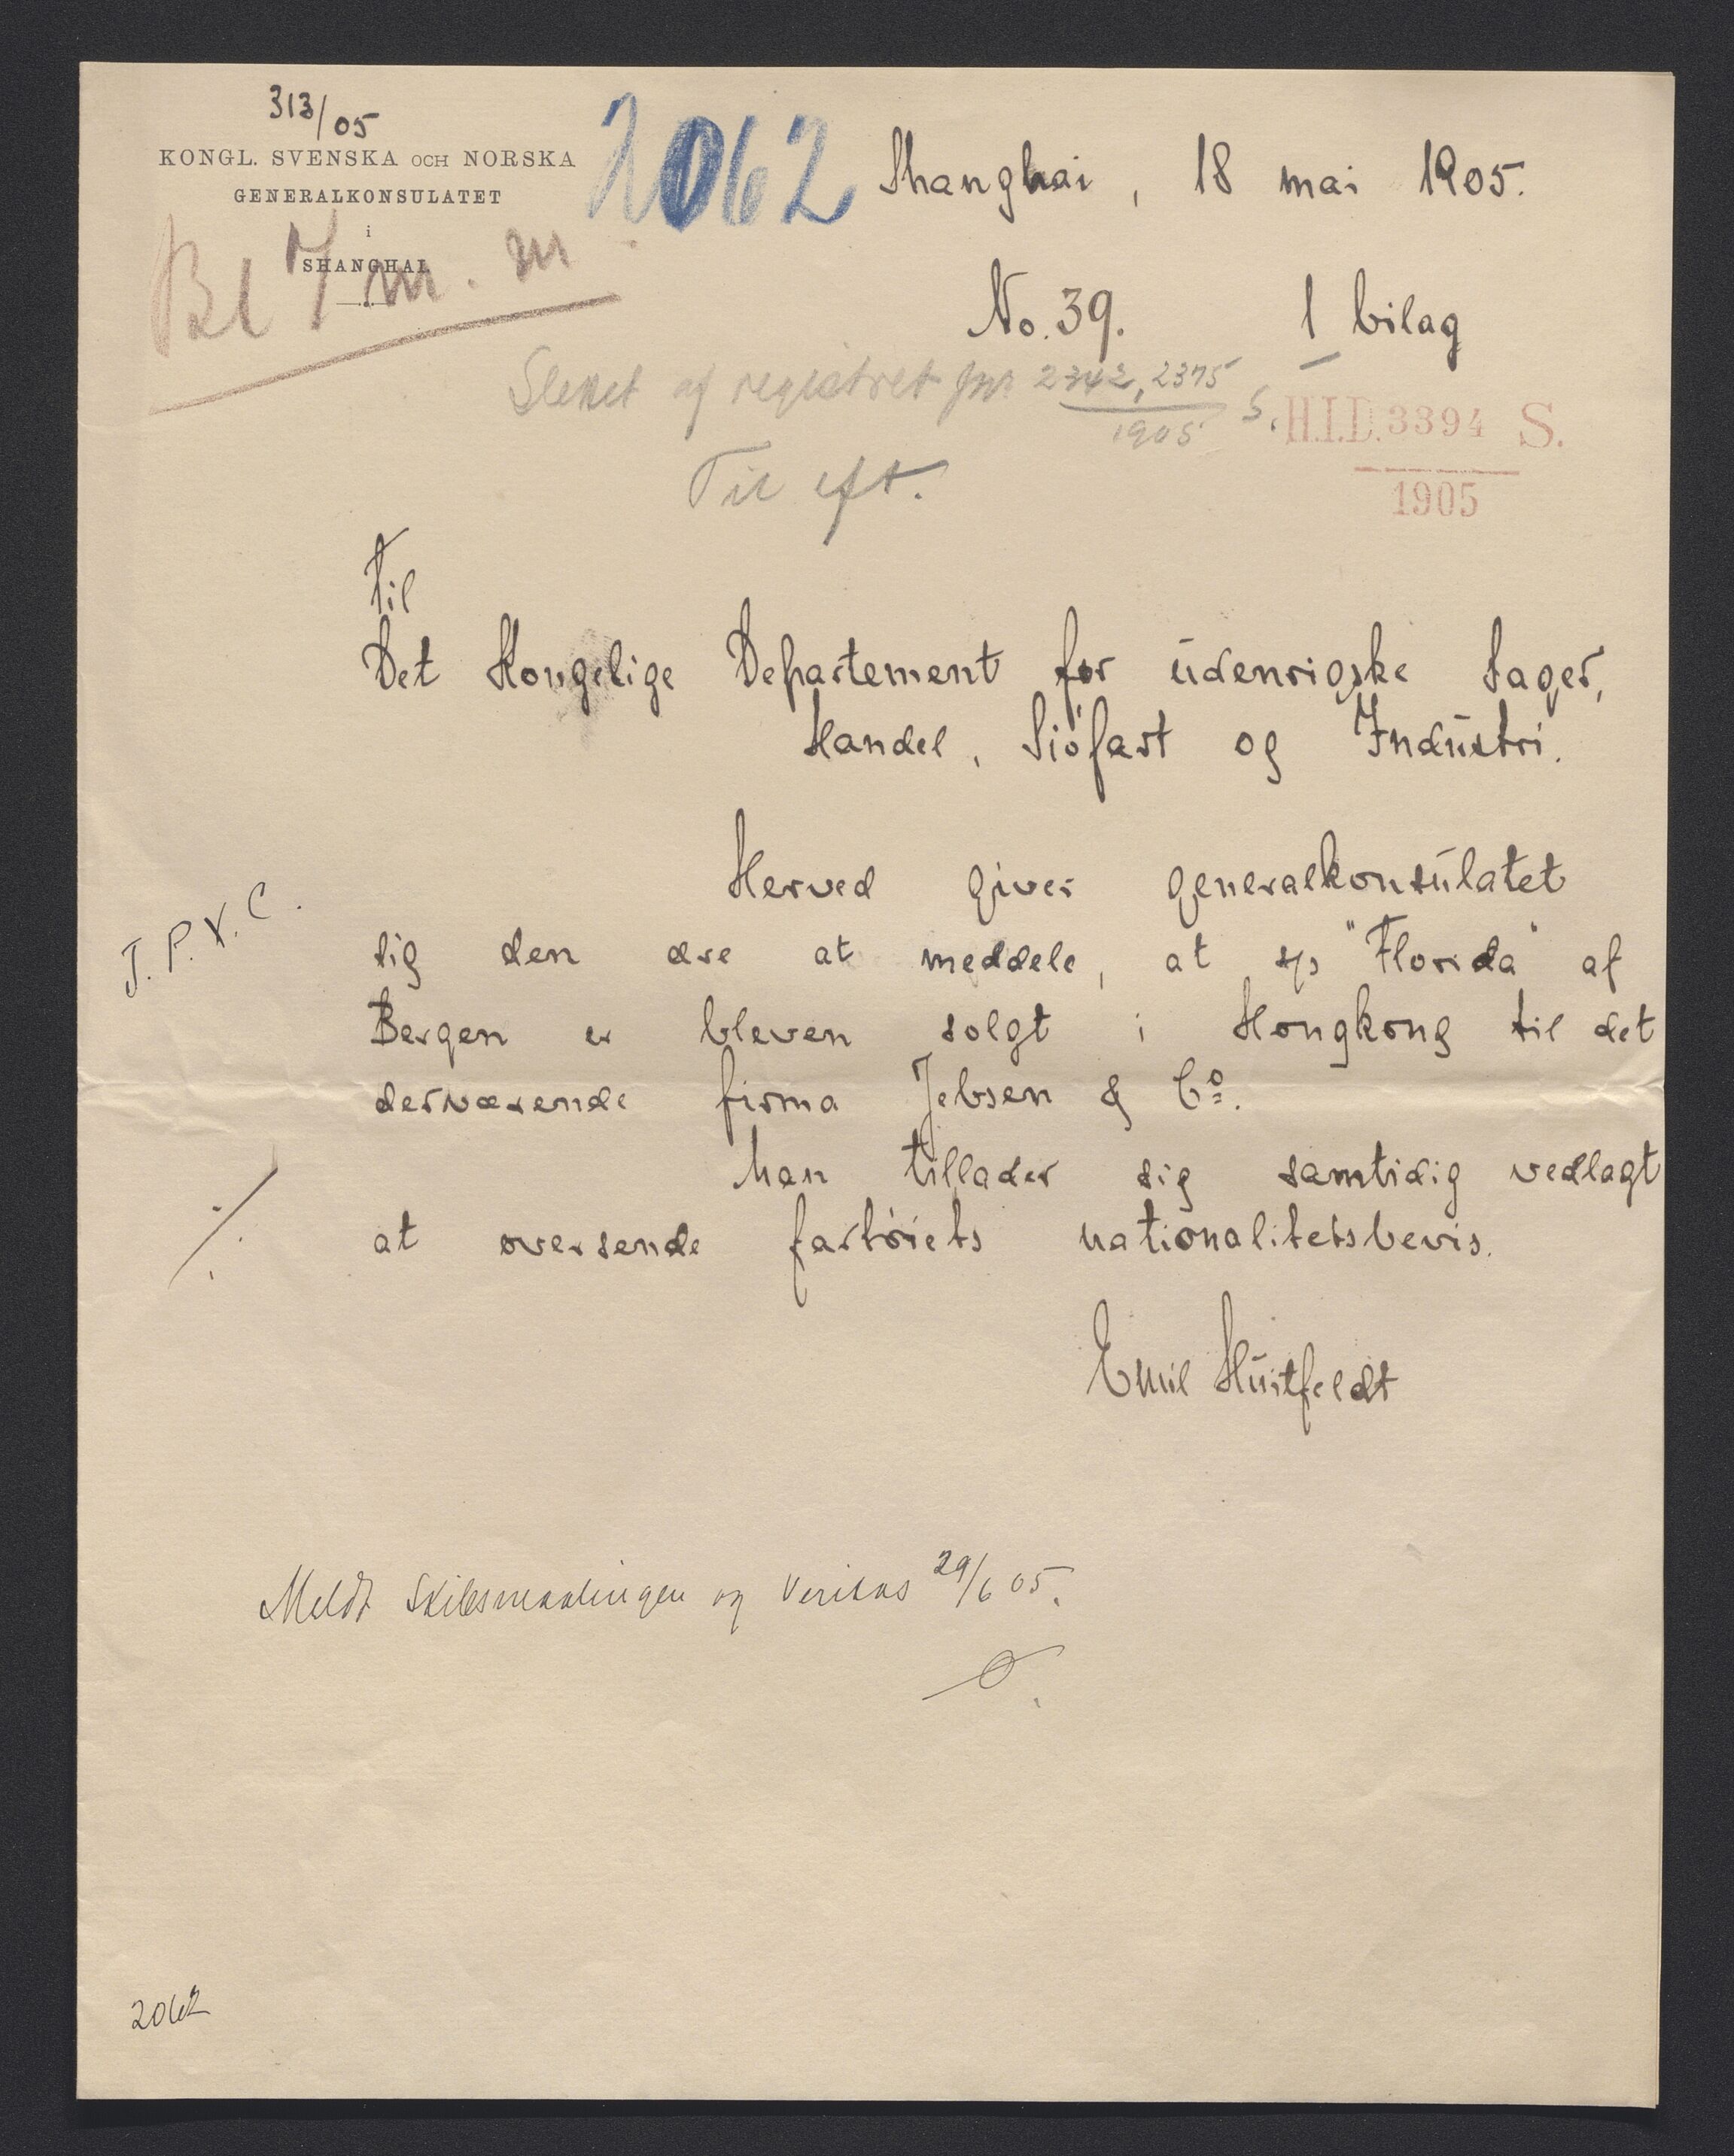 313/05
KONGL. SVENSKA OCH NORSKA
GENERALKONSULATET
i
SHANGHAI.
2062
Shanghai, 18 mai 1905.
No. 39. 1 bilag
Slettet af registret jnr 2342, 2375 S.
1905
H.I.D. 3394 S.
1905
Til
Det Kongelige Departement for udenrigske Sager,
Handel, Siöfart og Industri.
Herved giver generalkonsulatet
J. P. V. C.
sig den ære at meddele, at s/s "Florida" af
Bergen er bleven solgt i Hongkong til det
derværende firma Jebsen & Co.
Man tillader sig samtidig vedlagt
at oversende fartöiets nationalitetsbevis.
Emil Huitfeldt
Meldt Skibsmaalingen og Veritas 29/6 05.
2062